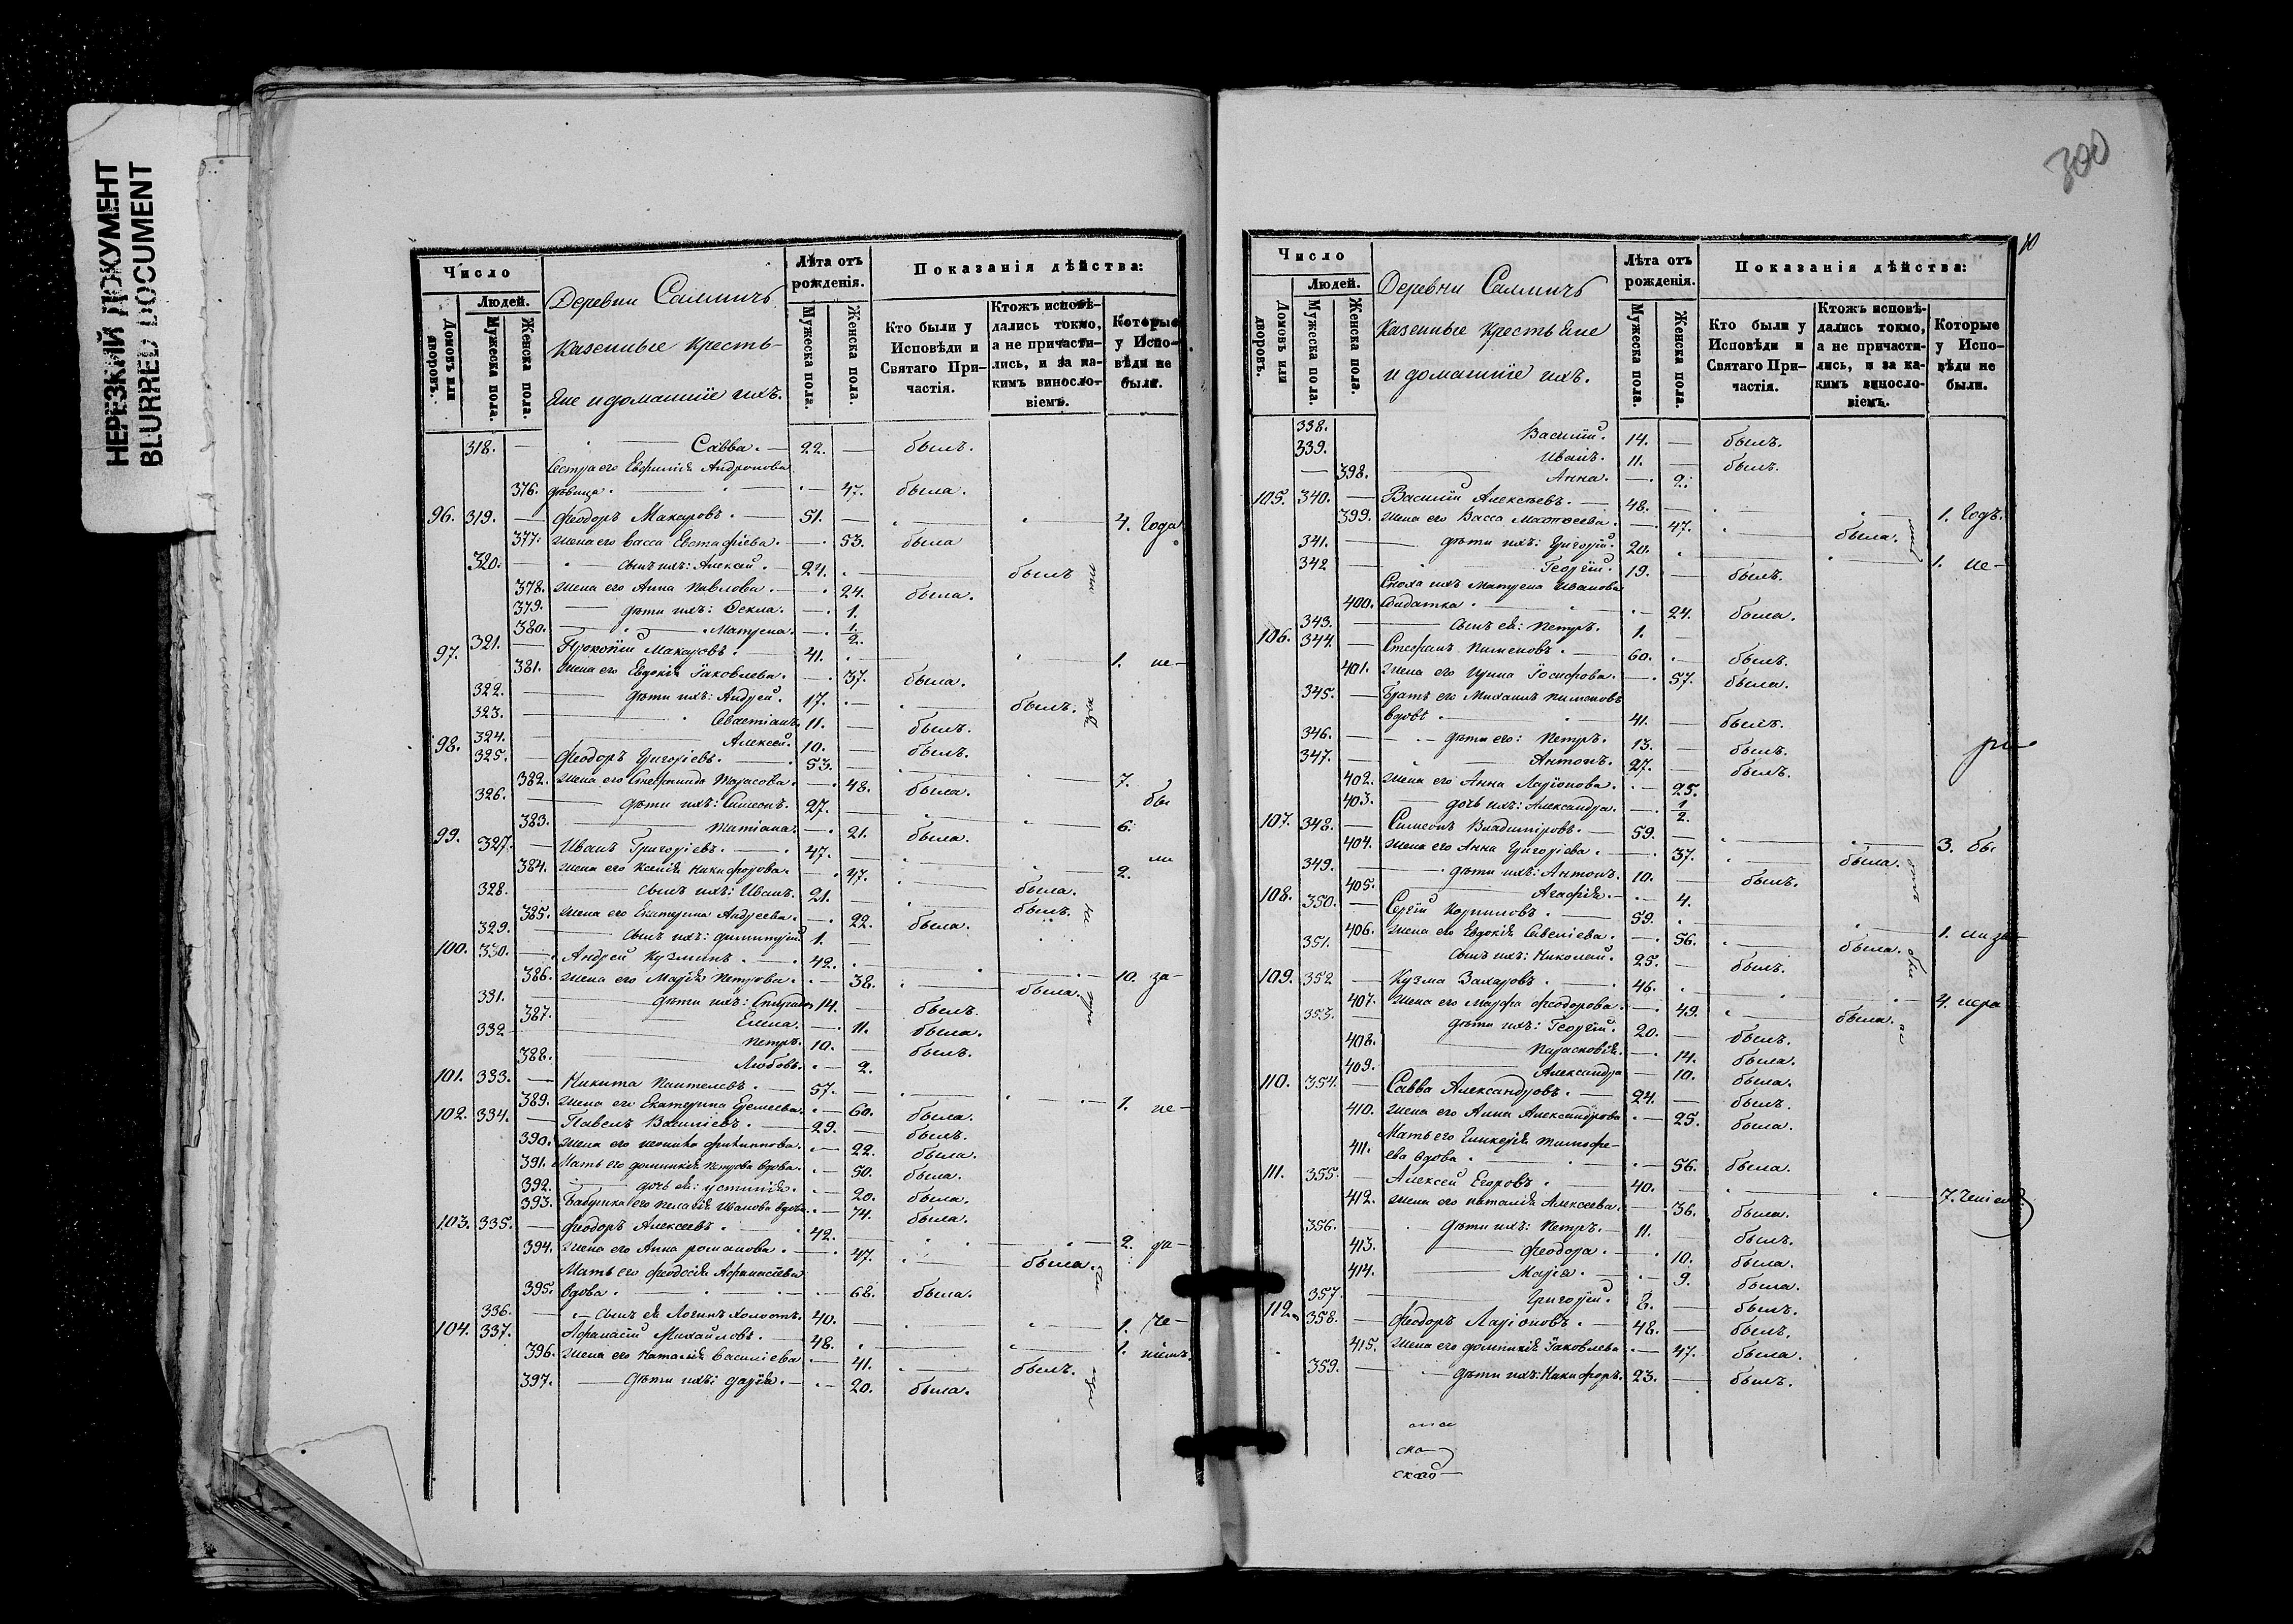 НЕРЕЗКИЙ ДОКУМЕНТ
BLURRED DOCUMENT
300
10
Число
Людей.
Домовъ или дворовъ.
Мужеска пола.
Женска пола.
Деревни Салтичъ
казенные Кресть-
яне и домашніе ихъ.
Лѣта отъ рожденія.
Мужеска пола.
Женска пола.
Показанія дѣйства:
Кто были у Исповѣди и Святаго Причастія.
Ктожъ исповѣ-
дались токмо,
а не причасти-
лись, и за ка-
кимъ винослo-
віемъ.
Которые у Испо-
вѣди не были.
318. — Савва. — 22. — былъ.
Сестра его Евфимія Андронова
376. дѣвица. — 47. была.
96. 319. — Феодоръ Макаровъ. — 51. — 4. года
377. жена его Васса Евстафіева. — 53. была
320. — сынъ ихъ: Алексѣй. — 24. — былъ
378. жена его Анна Павлова. — 24. была.
379. — дѣти ихъ: Ѳекла. — 1.
380. — Матрена. — 1/2.
97. 321. — Прокопій Макаровъ. — 41. — 1. не-
381. жена его Евдокія Іаковлева. — 37. была.
322. — дѣти ихъ: Андрей. 17. — былъ.
323. — Севастіанъ. 11. — былъ.
324. — Алексѣй. 10. — былъ.
98. 325. — Феодоръ Григоріевъ. — 53. — 7.
382. жена его Стефанида Тарасова. — 48. была.
326. — дѣти ихъ: Симеонъ. 27. — 6. бы
383. — Татіана. — 21. была.
99. 327. — Иванъ Григоріевъ. — 47. — 2. ли
384. жена его Ксенія Никифорова. — 47. — была.
328. — сынъ ихъ: Иванъ. 21. — былъ.
385. жена его Екатерина Андреева. — 22. была.
329. — сынъ ихъ: Димитрій. 1. —
100. 330. — Андрей Кузминъ. — 42. — 10. за-
386. жена его Марія Петрова. — 38. — была.
331. — дѣти ихъ: Спиридонъ 14. — былъ.
387. — Елена. — 11. была.
332 — Петръ. 10. — былъ.
388. — Любовь. — 2.
101. 333. — Никита Пантелевъ. — 57. — 1. не-
389. жена его Екатерина Еремеева. — 60. была.
102. 334. — Павелъ Василіевъ. — 29. — былъ.
390. жена его Моника Филиппова. — 22. была.
391. Мать его Домникія Петрова вдова. — 50. была.
392. — дочь ея: Устинія. — 20. была.
393. Бабушка его Пелагія Иванова вдова. — 74. была.
103. 335. — Феодоръ Алексеевъ. — 42. — 2. ра-
394. жена его Анна Романова. — 47. — была.
Мать его Феодосія Афанасіева
395. вдова. — 68. была.
336. — сынъ ея Логинъ холостъ. 40. — 1. че-
104. 337. — Афанасій Михайловъ. — 48. — 1. ніемъ.
396. жена его Наталія Василіева — 41. — былъ.
397. — дѣти ихъ: Дарія. — 20. была.
Число
Людей.
Домовъ или дворовъ.
Мужеска пола.
Женска пола.
Деревни Салтичъ
казенные Крестьяне
и домашніе ихъ.
Лѣта отъ рожденія.
Мужеска пола.
Женска пола.
Показанія дѣйства:
Кто были у Исповѣди и Святаго Причастія.
Ктожъ исповѣ-
дались токмо,
а не причасти-
лись, и за ка-
кимъ винослo-
віемъ.
Которые у Испо-
вѣди не были.
338. Василій. 14. — былъ.
339. Иванъ. 11. — былъ.
— 398. — Анна. — 2.
105. 340. — Василій Алексѣевъ. — 48. — 1. годъ.
399. жена его Васса Матѳеева. — 47. — была.
341. — дѣти ихъ: Григорій. 20. — 1. не-
342 — Георгій. 19. — былъ.
Сноха ихъ Матрена Иванова
400. солдатка. — 24. была.
343. — сынъ ея: Петръ. 1. —
106. 344. — Стефанъ Пименовъ. — 60. — былъ.
401. жена его Ирина Іосифова. — 57. была.
345. — Братъ его Михаилъ Пименовъ
вдовъ. — 41. — былъ.
346. — дѣти его: Петръ. 13. — былъ.
347. — Антонъ. 27. — былъ.
402. жена его Анна Ларіонова. — 25.
403. — дочь ихъ: Александра. — 1/2.
107. 348. — Симеонъ Владиміровъ. — 59. — 3. бы
404. жена его Анна Григоріева. — 37. — была.
349. — дѣти ихъ: Антонъ. 10. — былъ.
405. — Агафія. — 4.
108. 350. — Сергій Корниловъ. — 59. — 1. ли за
406. жена его Евдокія Савеліева. — 56. — была.
351. — сынъ ихъ: Николай. 25. — былъ.
109. 352 — Кузма Захаровъ. — 46. — 4. нера
407. жена его Марфа Феодорова. — 49. — была.
353. — дѣти ихъ: Георгій. 20. — былъ.
408. — Параскевія. — 14. была.
409. — Александра — 10. была.
110. 354. — Савва Александровъ. — 24. — былъ.
410. жена его Анна Александрова. — 25. была.
Мать его Гликерія Тимофе-
411. ева вдова. — 56. была.
111. 355. — Алексѣй Егоровъ. — 40. — 7. ченіемъ.
412. жена его Наталія Алексеева. — 36. была.
356. — дѣти ихъ: Петръ. — 11. — былъ.
413. — Феодора. — 10. была.
414. — Марія. — 9. была.
357. — Григорій. 8. — былъ.
112. 358. — Феодоръ Ларіоновъ. — 48. — былъ.
415. жена его Домникія Іаковлева — 47. была.
359. — дѣти ихъ: Никифоръ. 23. — былъ.